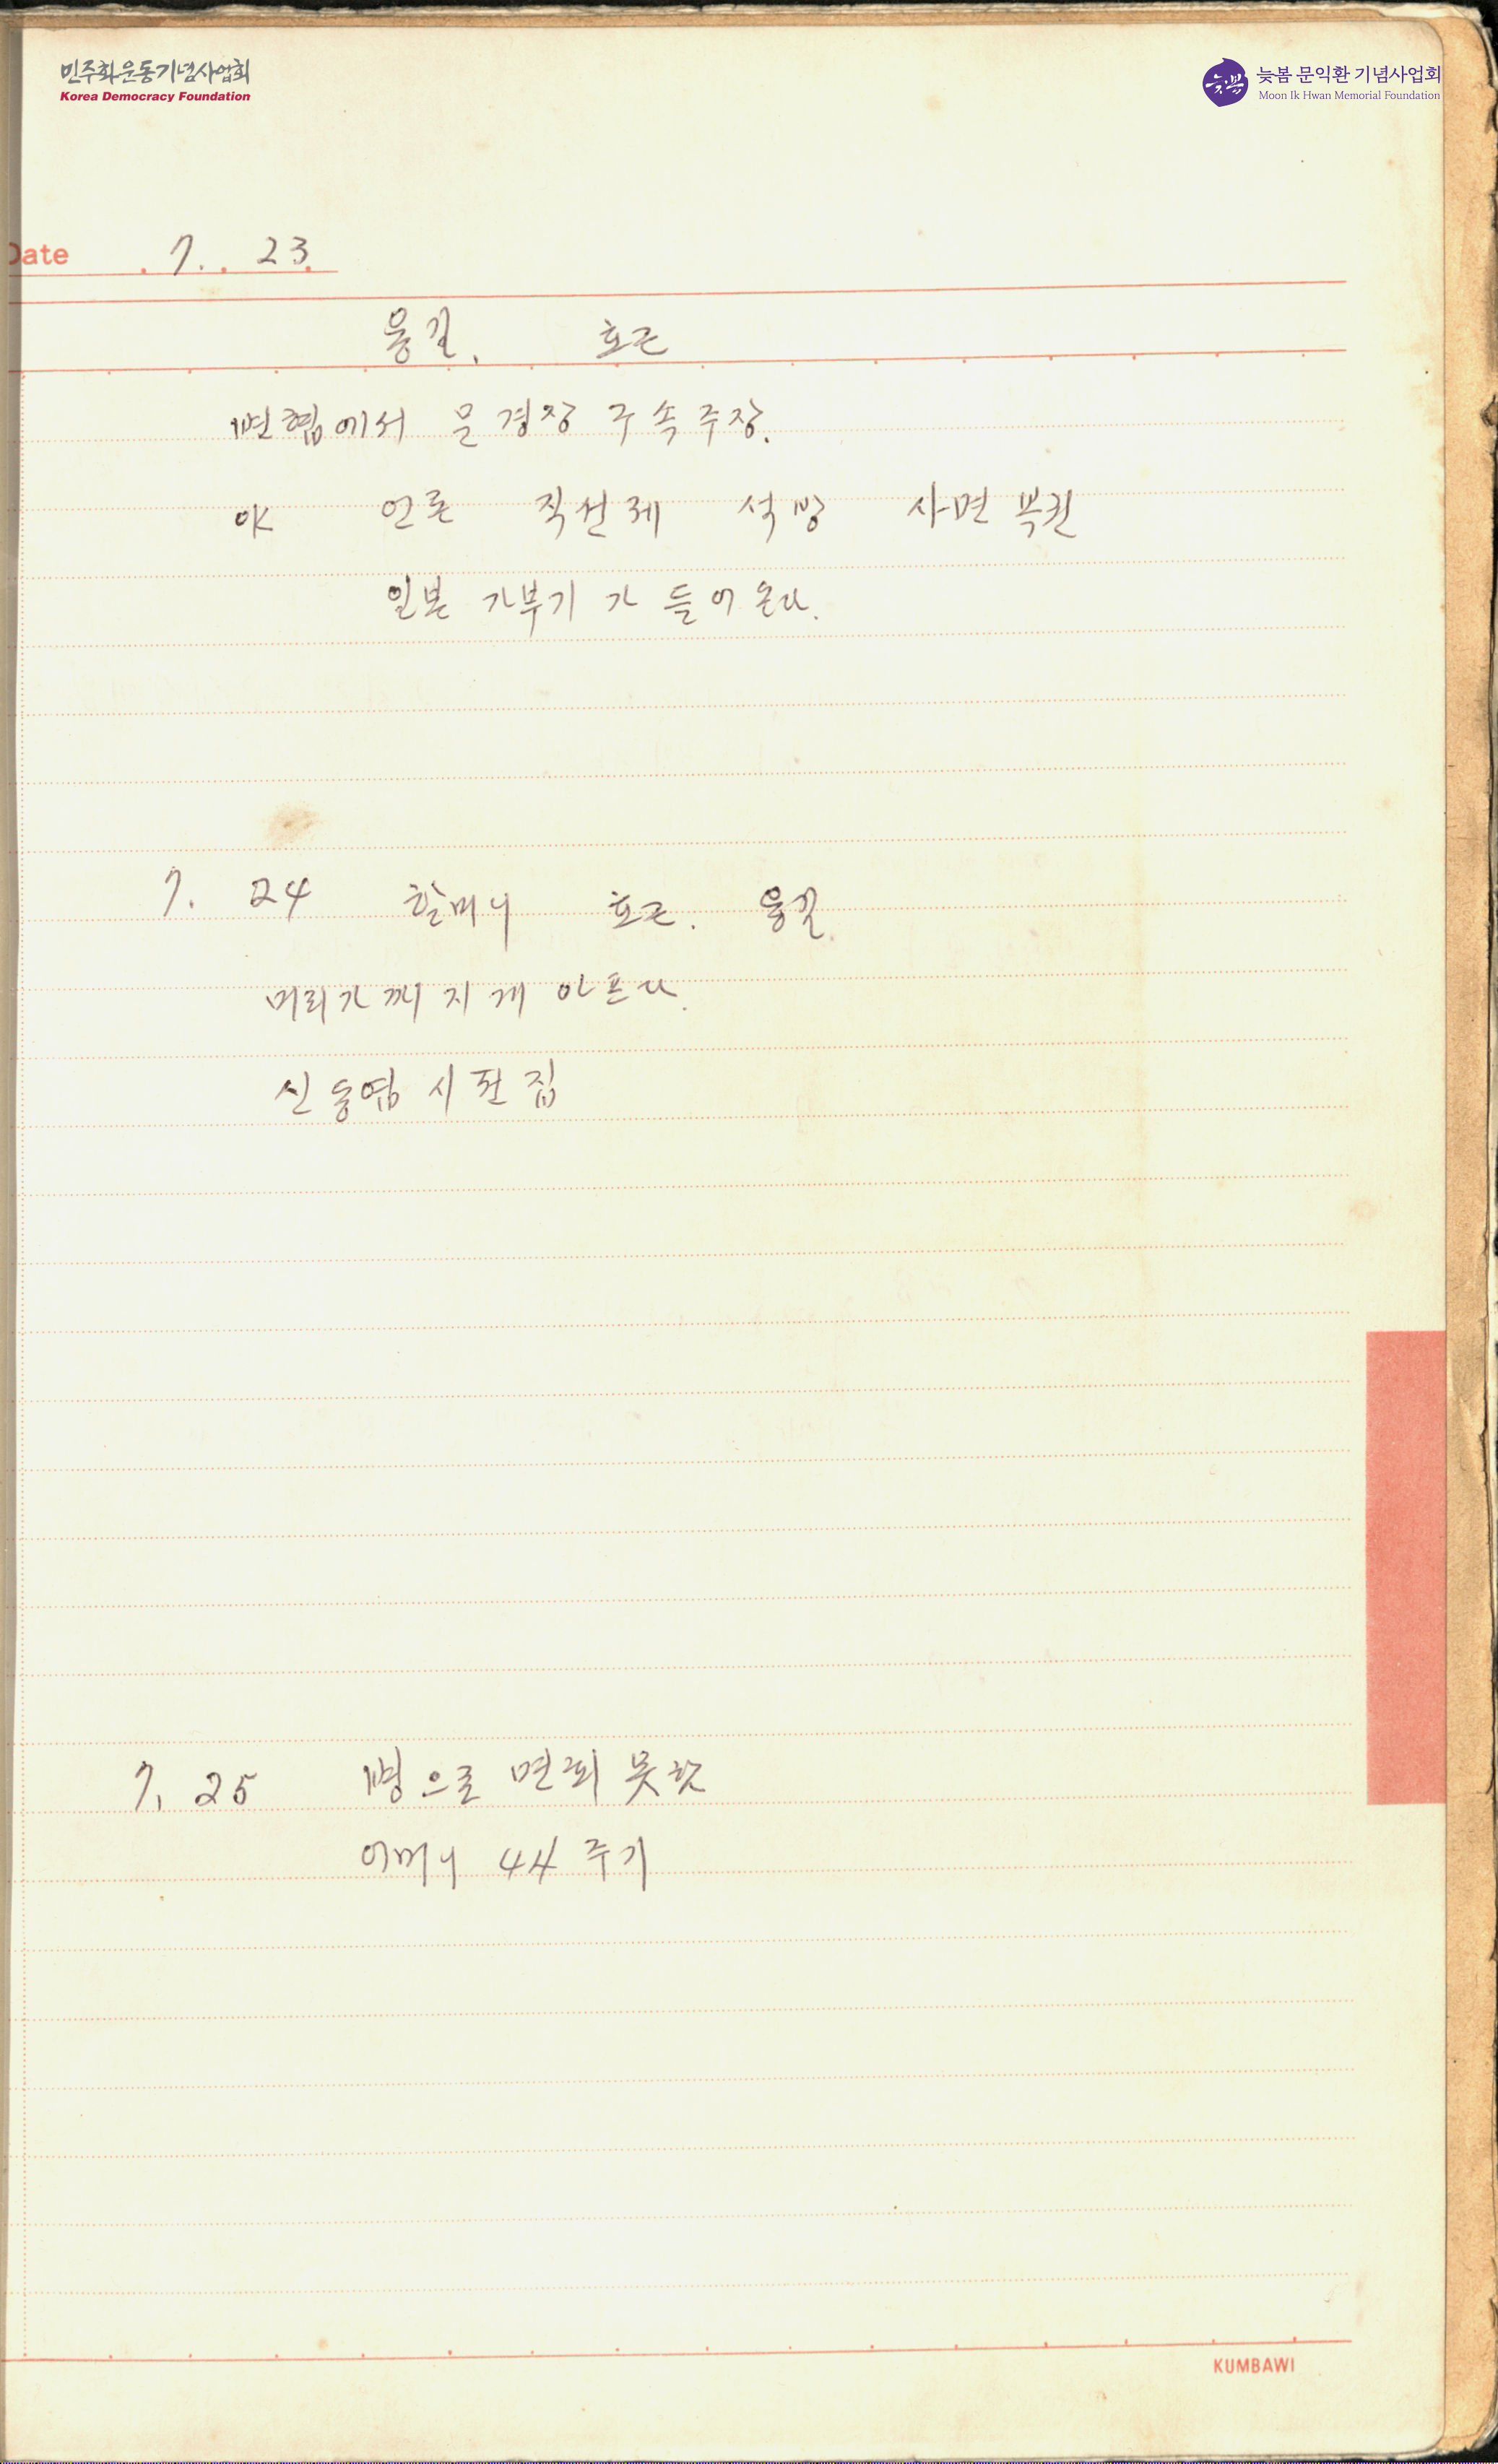 민주화운동기념사업회
Korea Democracy Foundation
늦봄 문익환 기념사업회
Moon Ik Hwan Memorial Foundation
Date . 7. . 23.
용길. 호근
변협에서 문경장 구속주장.
야 언론 직선제 석방 사면복권
일본 가부기가 들어온다.
7. 24 할머니 호근. 용길.
머리가 깨지게 아프다.
신동엽 시전집
7. 25 병으로 면회 못함
어머니 4주기
KUMBAWI